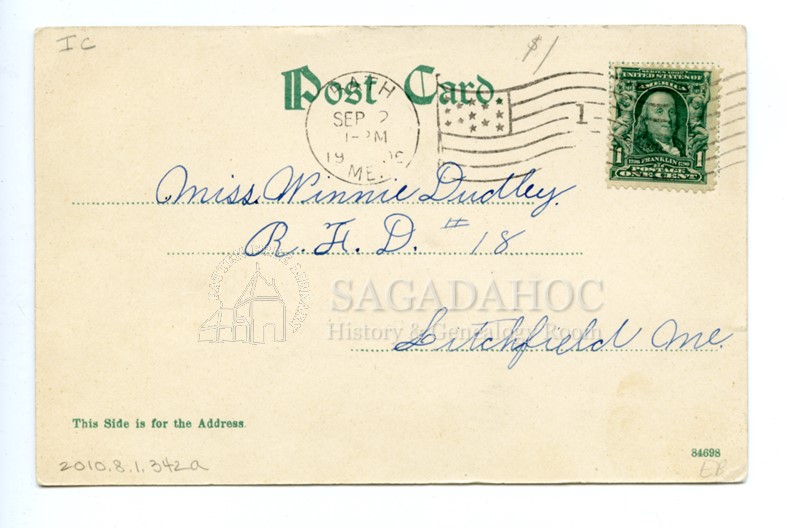 IC
$1
Post Card
BATH
SEP 2
1-PM
19 06
ME.
1
SERIES 1902
UNITED STATES OF
AMERICA
1
1
FRANKLIN
POSTAGE
ONE CENT
Miss. Winnie Dudley.
R. F. D. # 18
SAGADAHOC
History & Genealogy Room
Litchfield Me.
This Side is for the Address.
84698
2010.8.1.342a